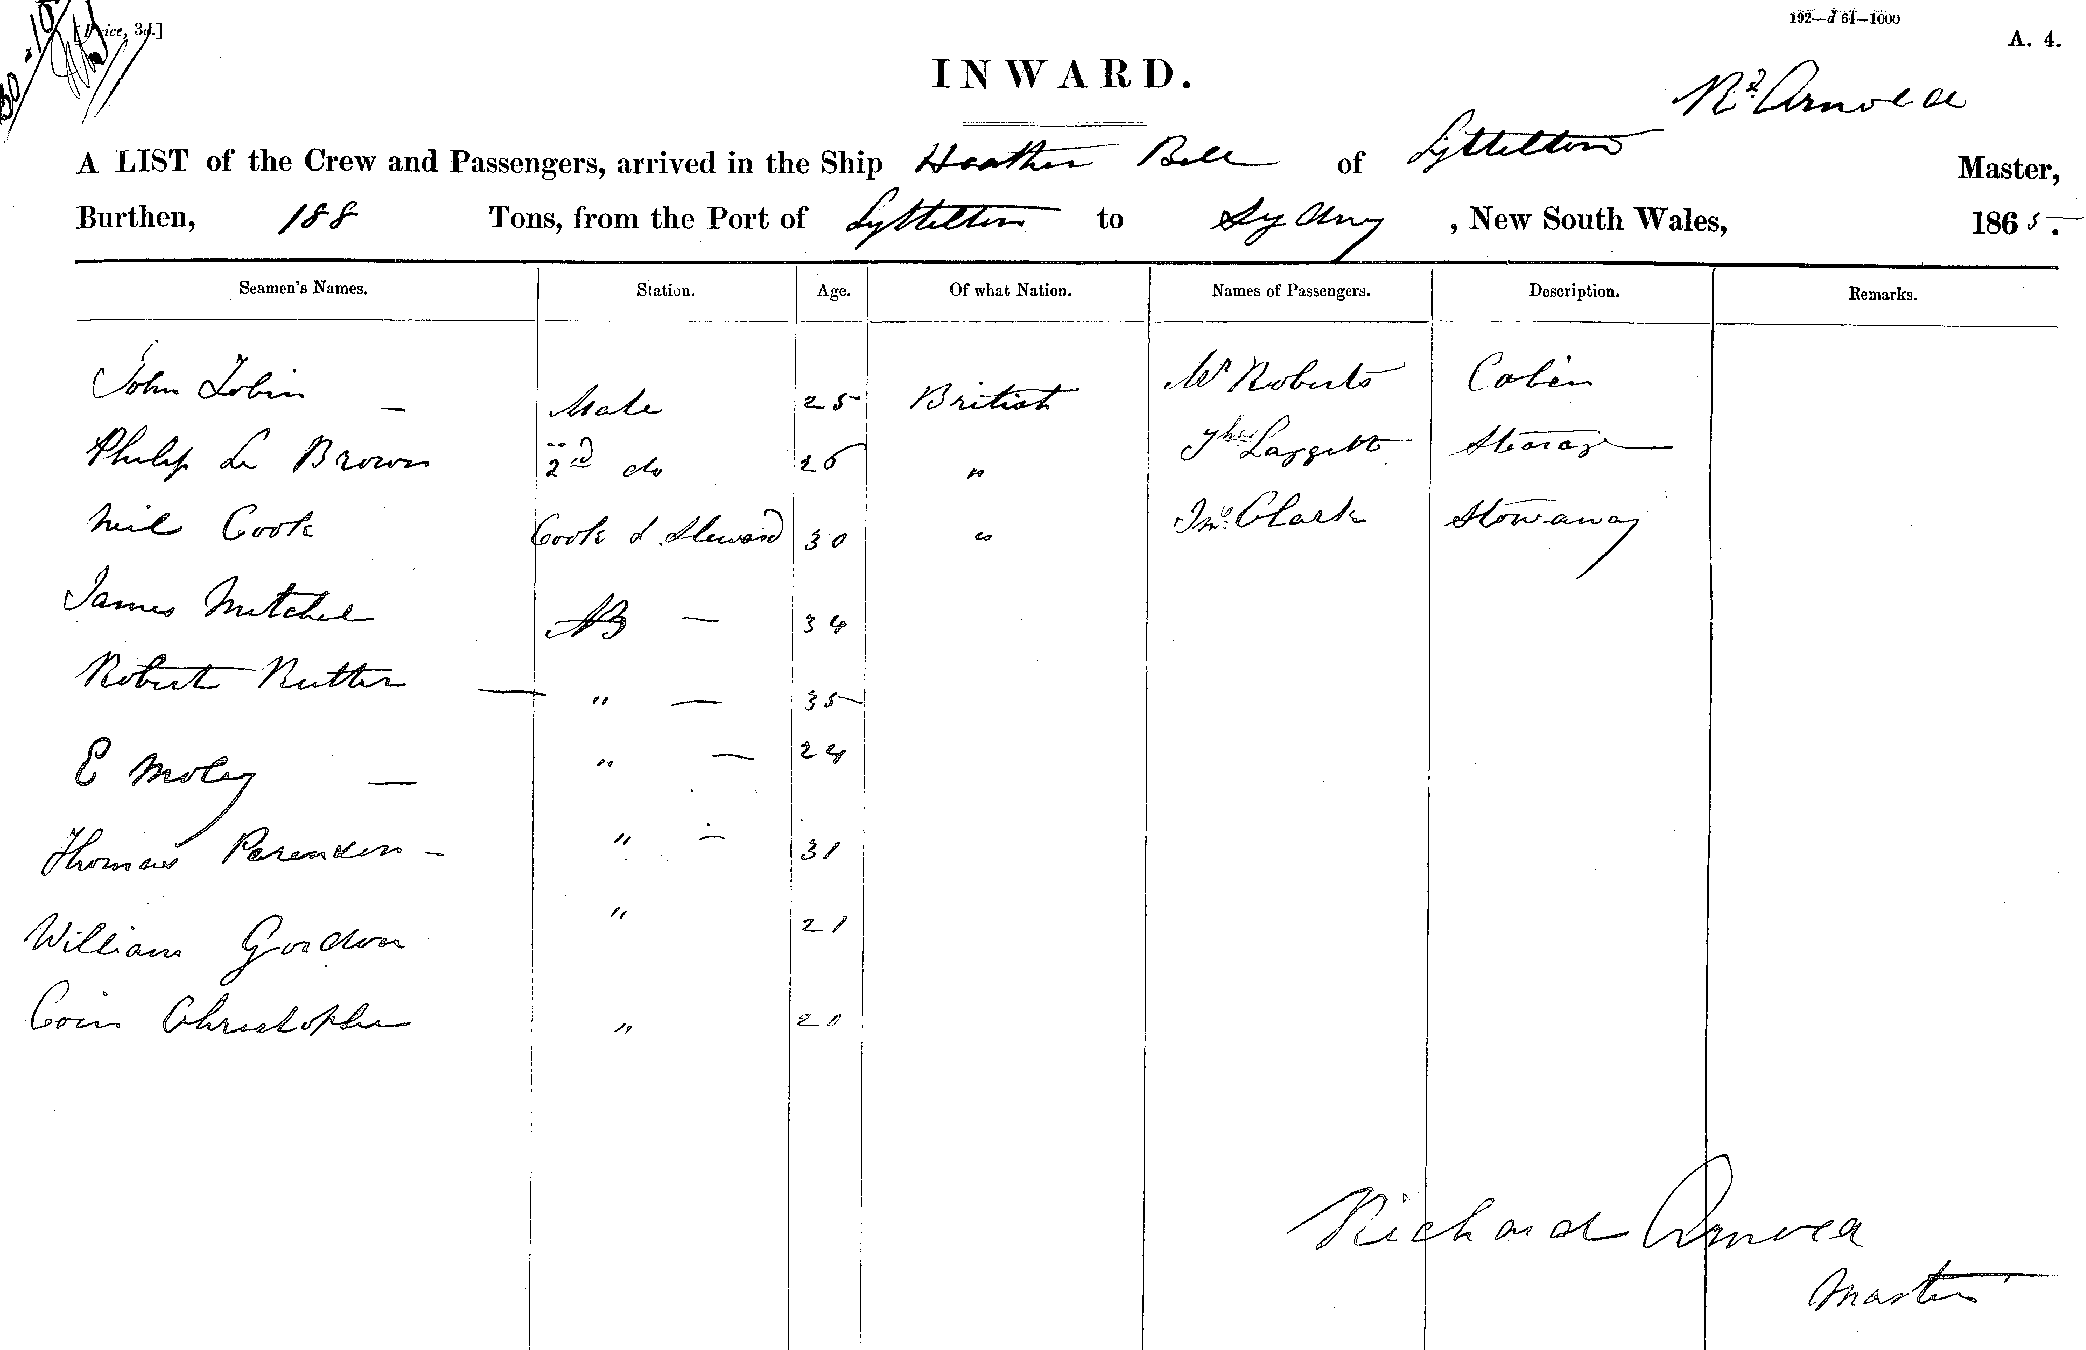 [Price, 3d.]
192—d 61—1000
A. 4.
INWARD.
Rd Arnold
A LIST of the Crew and Passengers, arrived in the Ship Heather Bell of Lyttelton Master,
Burthen, 188 Tons, from the Port of Lyttelton to Sydney, New South Wales, 1865.
Seamen's Names. Station. Age. Of what Nation. Names of Passengers. Description. Remarks.
John Tobin — Mate 25 British Mr Roberts Cabin
Philip Le Brown 2nd do 26 " Thos Steerage
Neil Cook Cook & Steward 30 " Jno Clark Stowaway
James Mitchel AB — 34
Robert Rutter — " — 35
E Moley — " — 24
Thomas — " — 31
William Gordon " 21
Christopher " 21
Richard Arnold
Master